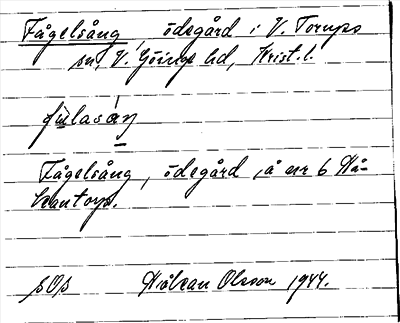 Fågelsång, ödegård i V. Torups
sn, V. Göinge hd, Krist. l.
fúlasáŋ
Fågelsång, ödegård å nr 6 Hå-
kantorp.
Håkan Olsson 1944.